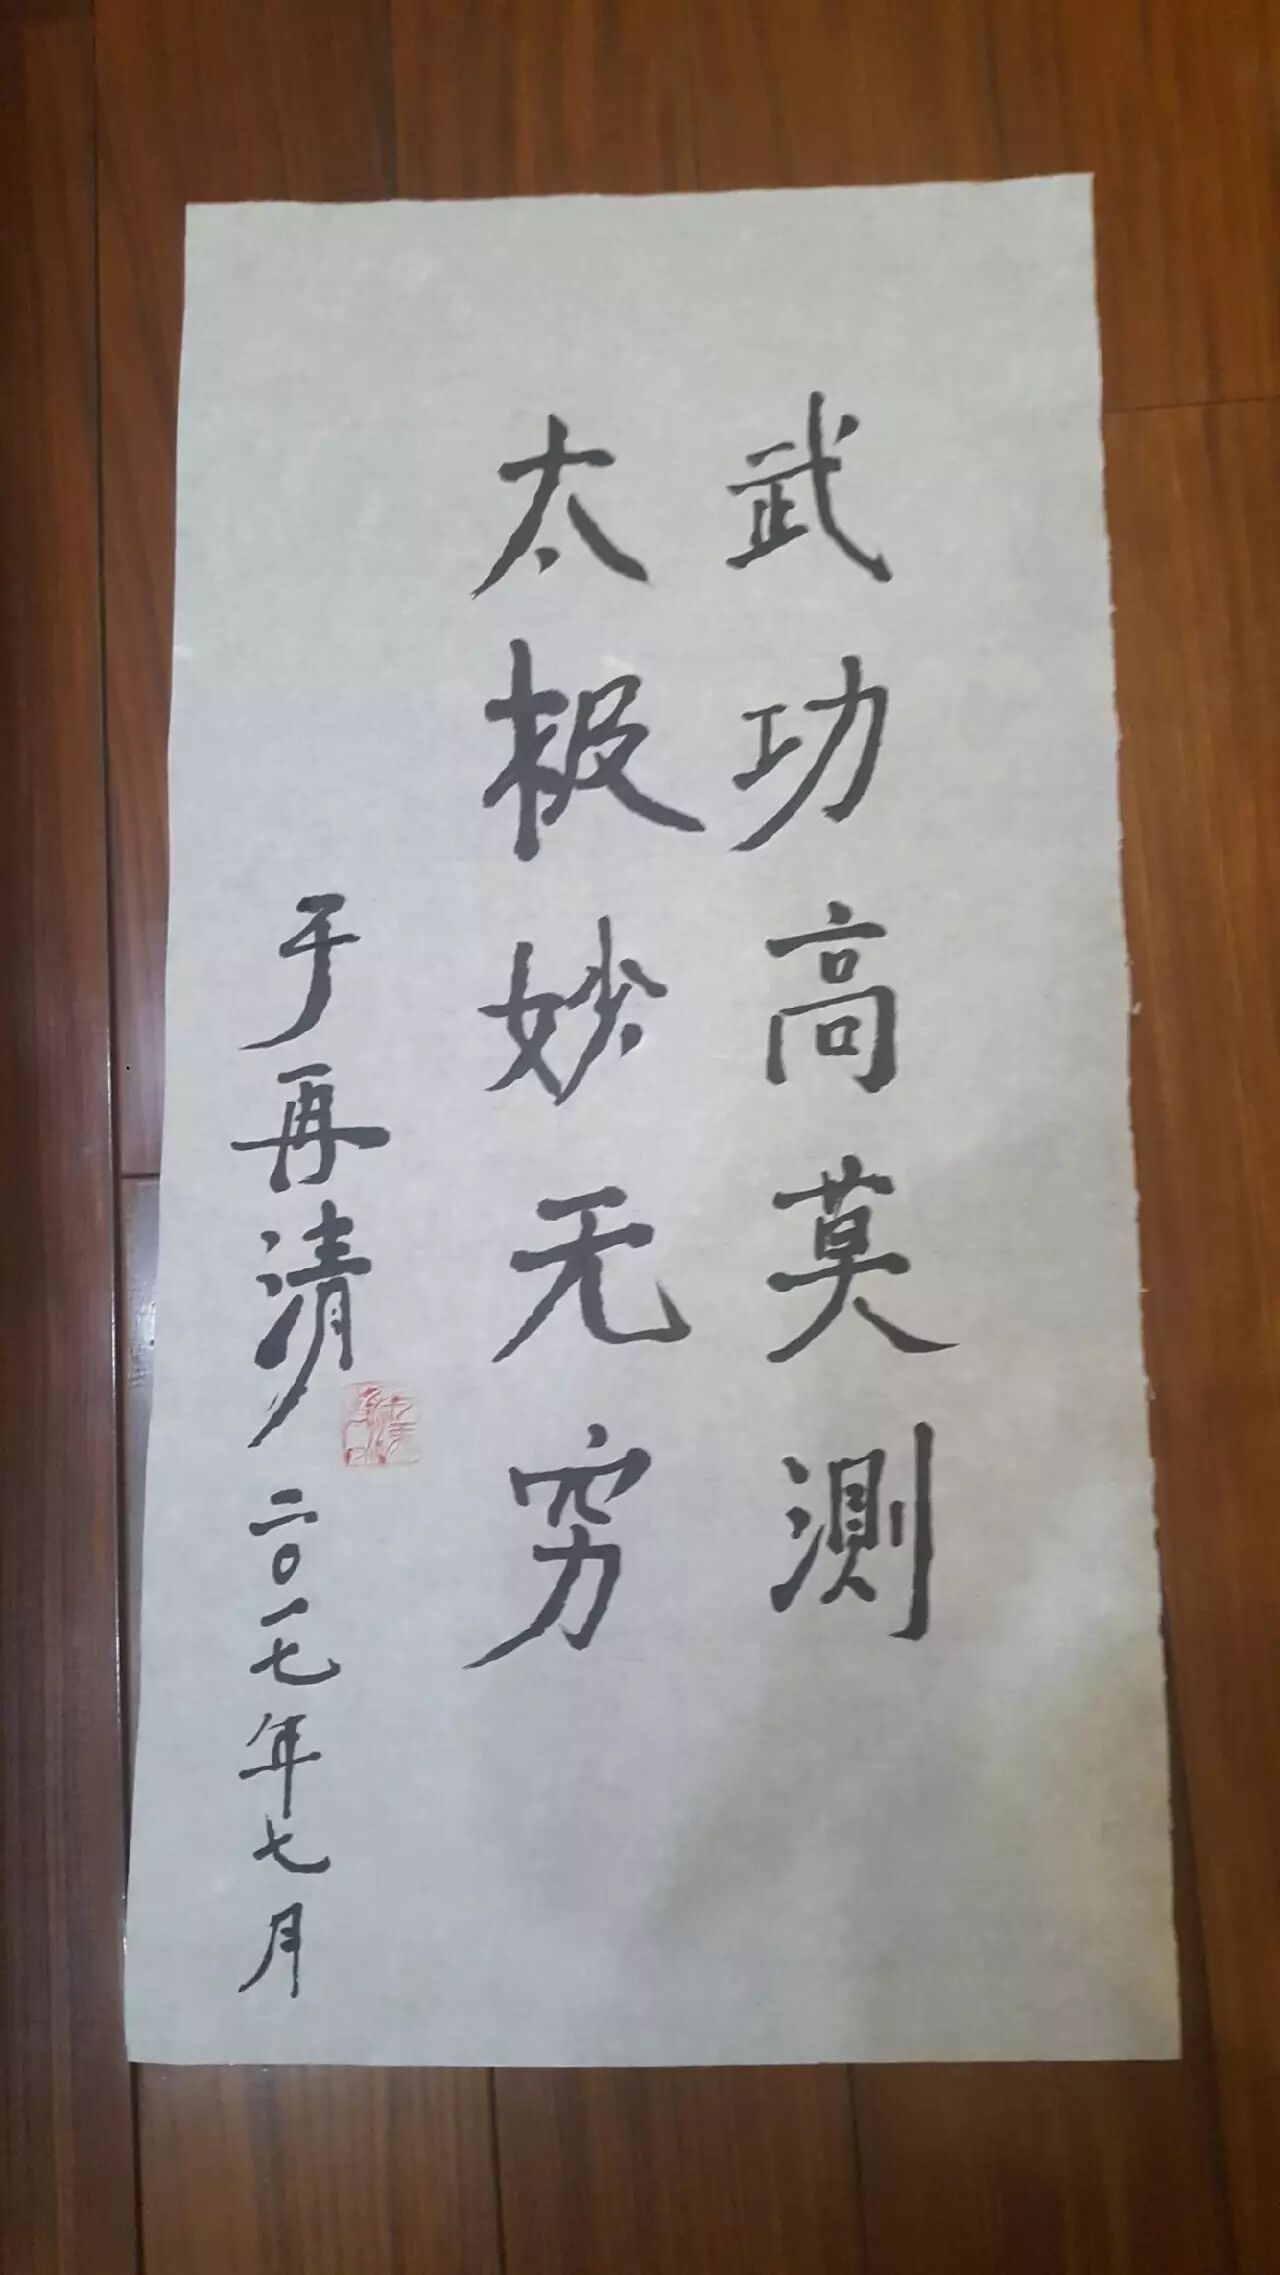 武功高莫测
太极妙无穷
于再清 二〇一七年七月